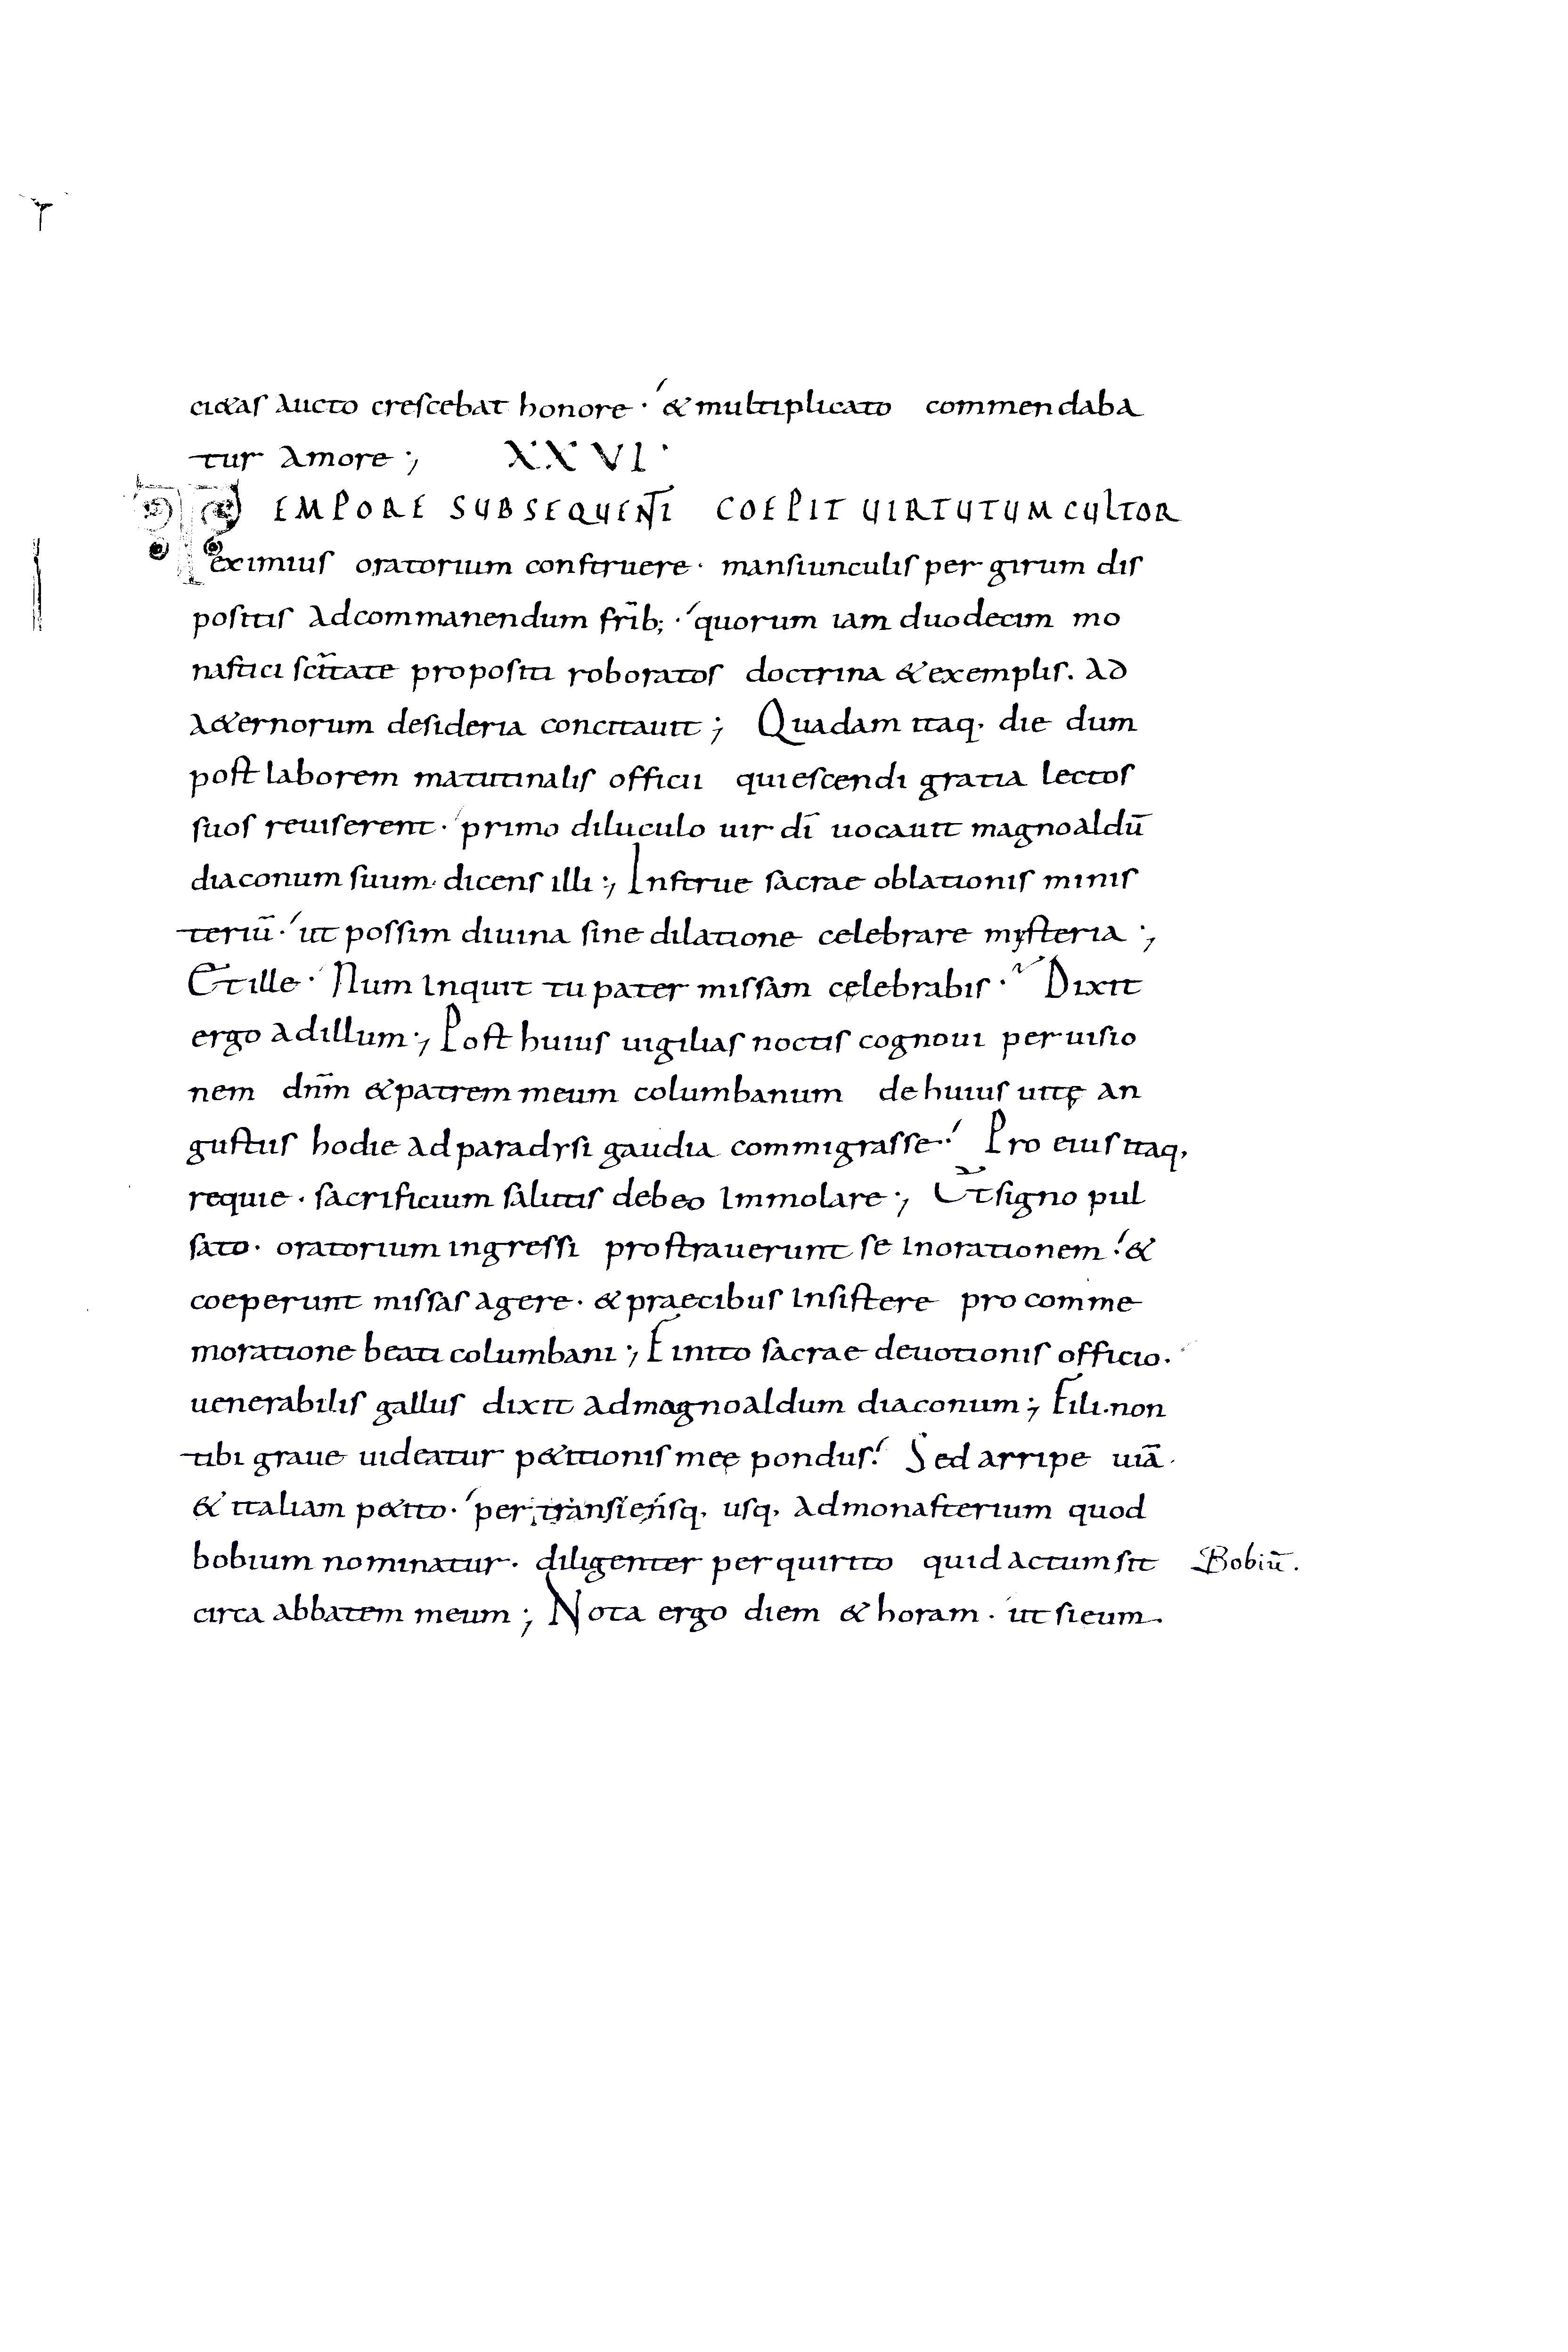 ci&as aucto crescebat honore · & multiplicato commendaba
tur amore ; XXVI ·
TEMPORE SUBSEQUENTI COEPIT UIRTUTUM CULTOR
eximius oratorium construere · mansiunculis per girum dis
positis adcommanendum fr̄ib; · quorum iam duodecim mo
nastici sc̄itate propositi roboratos doctrina & exemplis . ad
a&ernorum desideria concitauit ; Quadam itaq· die dum
post laborem matutinalis officii quiescendi gratia lectos
suos reuiserent · primo diluculo uir dī uocauit magnoaldū
diaconum suum · dicens illi ; Instrue sacrae oblationis minis
teriū · ut possim diuina sine dilatione celebrare mysteria ;
Et ille · Num inquit tu pater missam cęlebrabis · Dixit
ergo adillum ; Post huius uigilias noctis cognoui per uisio
nem dn̄m & patrem meum columbanum de huius uitę an
gustiis hodie ad paradysi gaudia commigrasse · Pro eius itaq,
requie · sacrificium salutis debeo immolare ; Et signo pul
sato · oratorium ingressi prostrauerunt se inorationem · &
coeperunt missas agere · & praecibus insistere pro comme
moratione beati columbani ; Finito sacrae deuotionis officio .
uenerabilis gallus dixit admagnoaldum diaconum ; Fili · non
tibi graue uideatur p&itionis meę pondus · Sed arripe uiā ·
& italiam p&ito · per transiensq, usq, admonasterium quod
bobium nominatur · diligenter perquirito quid actum sit Bobiū .
circa abbatem meum ; Nota ergo diem & horam · ut si eum .